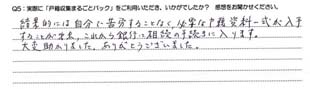 Q5：実際に「戸籍収集まるごとパック」をご利用いただき、いかがでしたか？ 感想をお聞かせください。
結果的には自分で苦労することなく、必要な戸籍資料一式が入手
することが出来、これから銀行に相続の手続きに入ります。
大変助かりました。ありがとうございました。